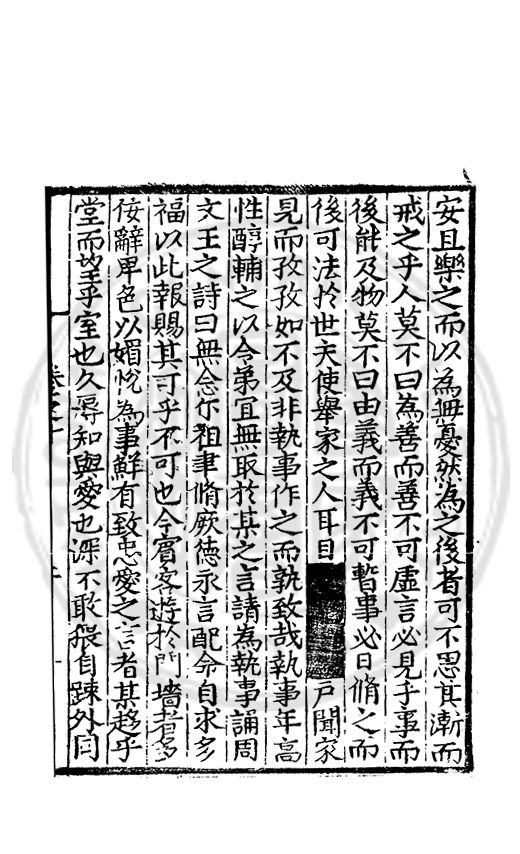 安且樂之而以為無憂然為之後者可不思其漸而
戒之乎人莫不曰為善而善不可虛言必見乎事而
後能及物莫不曰由義而義不可暫事必日脩之而
後可法於世夫使舉家之人耳目戸聞家
見而孜孜如不及非執事作之而孰致哉執事年高
性醇輔之以令弟宜無取於某之言請為執事誦周
文王之詩曰無念尔祖聿脩厥德永言配命自求多
福以此報賜其可乎不可也今賓客遊於門墻者多
佞辭卑色以媚悅為事鮮有致忠愛之言者某趍乎
堂而望乎室也久辱知與愛也深不敢猥自踈外同